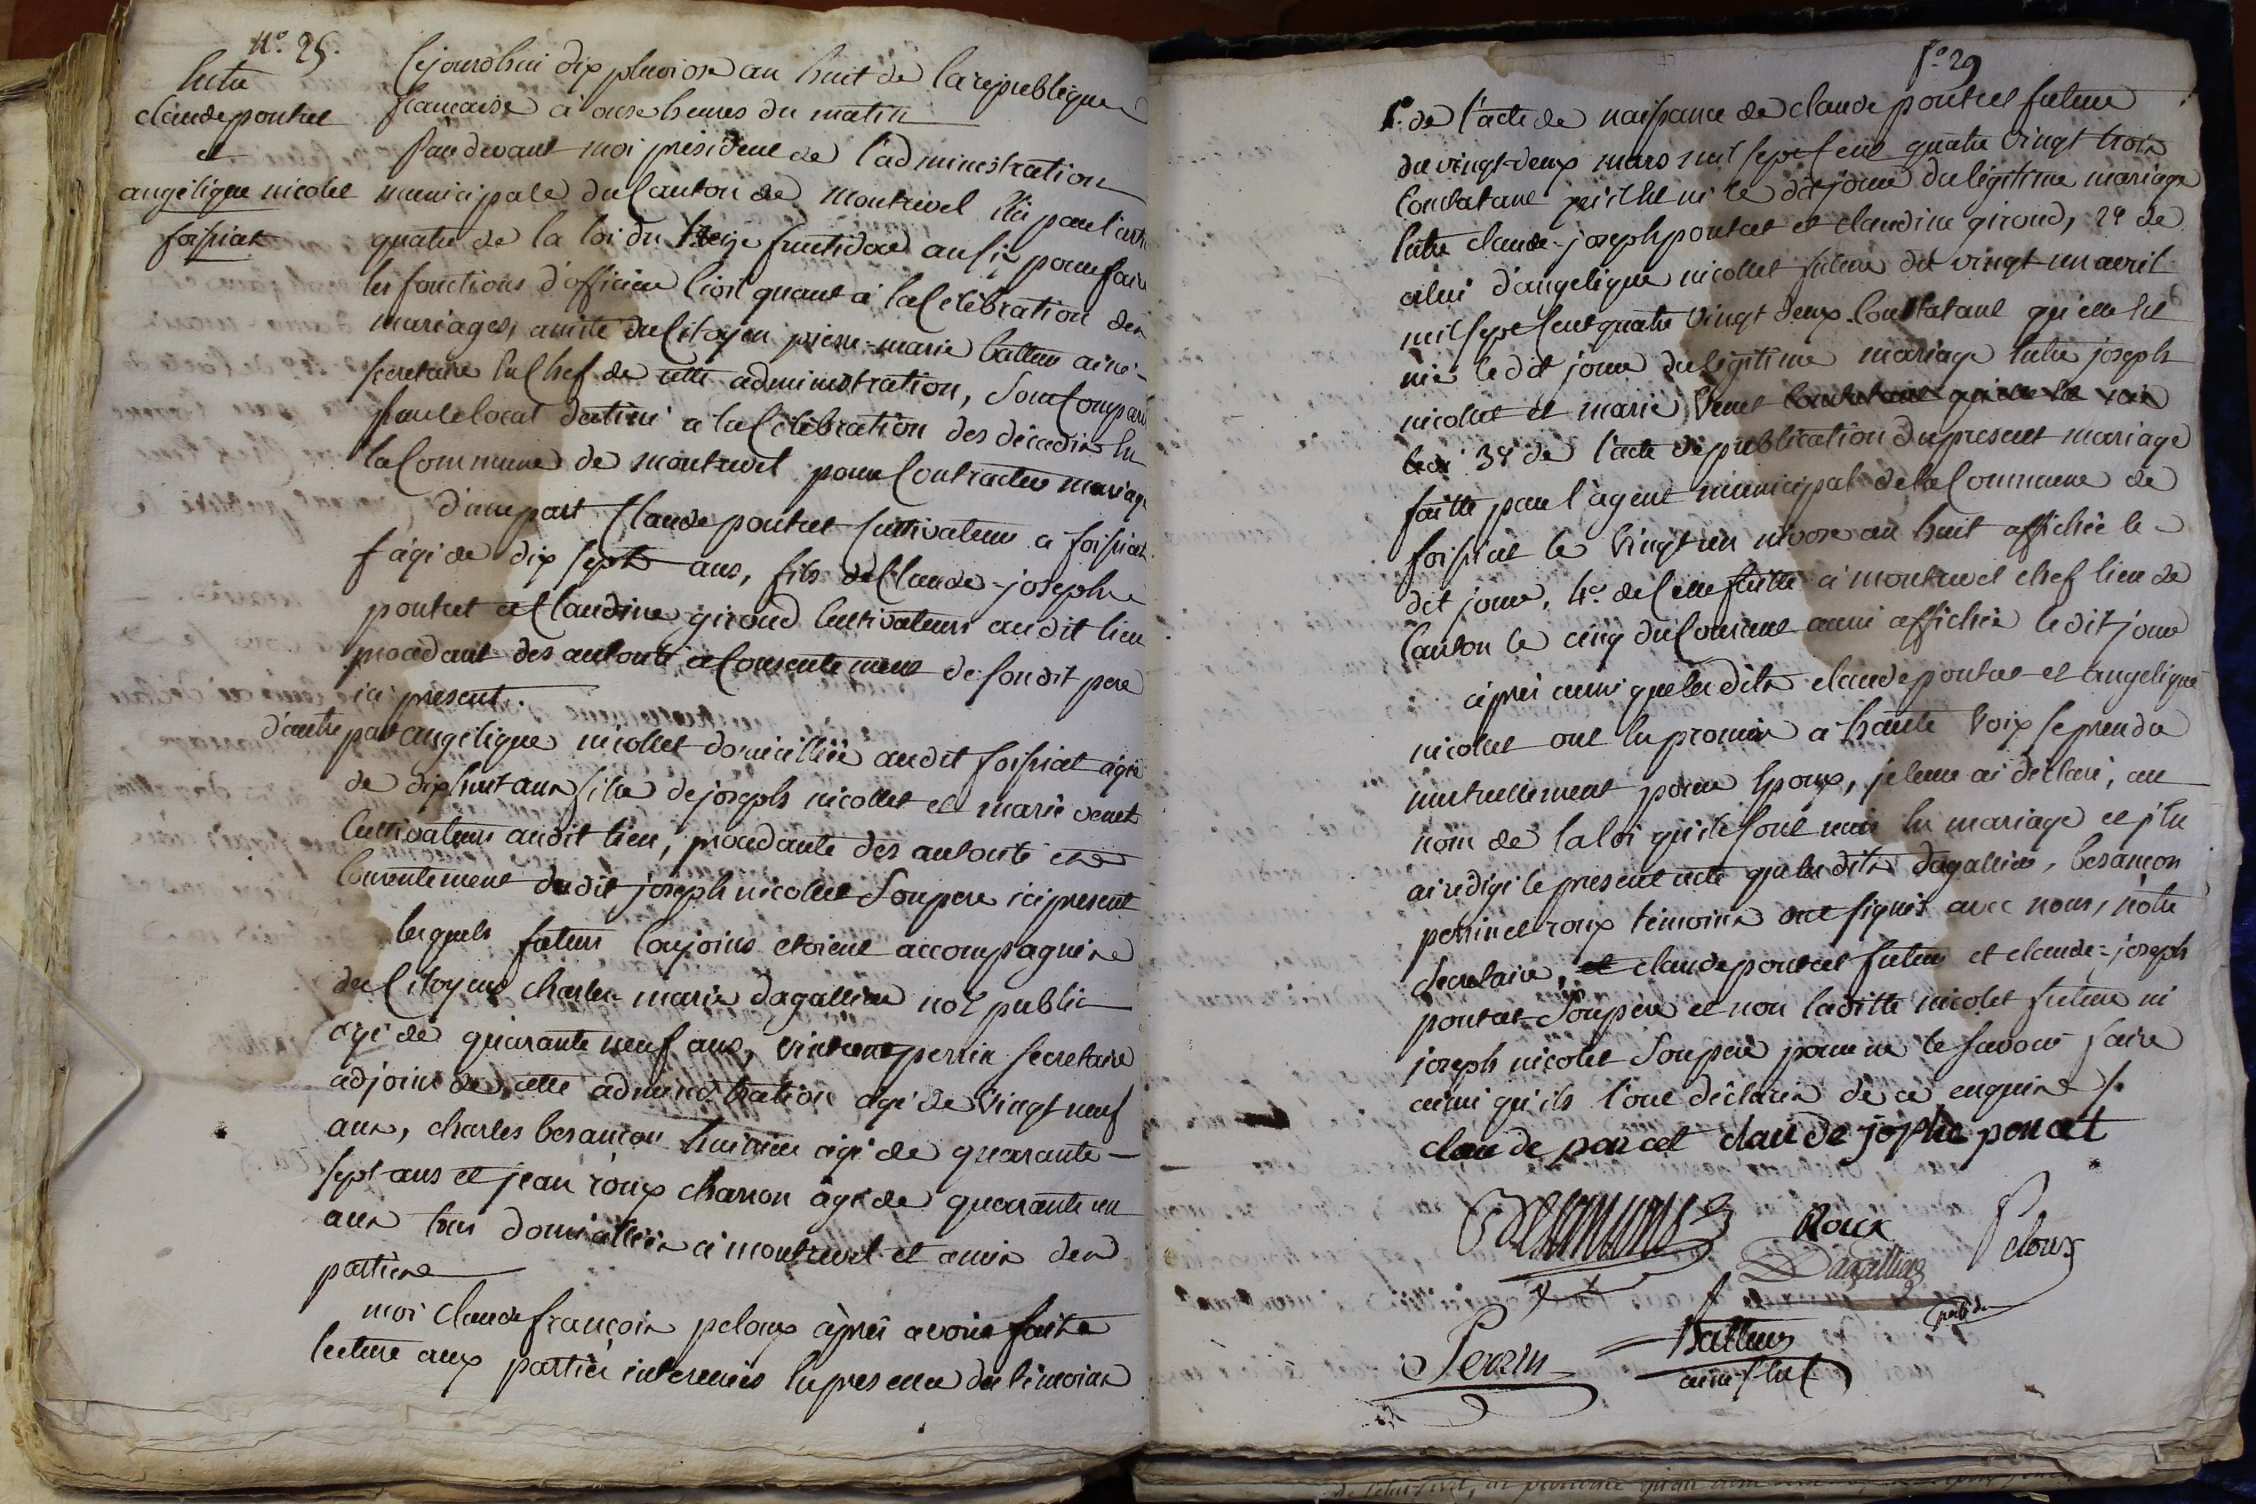 N°. 25.
Entre
claude pontet
et
angelique nicolet
foissiat
Cejourdhui dix pluviose an huit de la republique
francaise a onze heures du matin
Pardevant moi president de l'administration
municipale du Canton de montrevel elu par l'article
quatre de la loi du treize fructidor an six pour faire
les fonctions d'officier Civil quant a la Celebration des
mariages, assisté du Citoyen pierre-marie battur ainé
secretaire en Chef de cette administration, sont Comparus
pour le local destiné a la Celebration des decadis en
la Commune de montrevel pour Contracter mariage
d'une part Claude pontet Cultivateur a foissiat
agé de dix sept ans, fils de Claude-joseph
pontet et Claudine giroud Cultivateurs audit lieu
procedant des autorité et Consentement de son dit pere
ici present.
d'autre part angelique nicollet domicilliée audit foissiat agée
de dix huit ans fille de joseph nicollet et marie venet
Cultivateurs audit lieu, procedante des autorité et
Consentement dudit joseph nicollet Son pere ici present
lesquels futurs Conjoints etoient accompagnés
des Citoyens charles-marie dagallier not. public
agé de quarante neuf ans, vincent perrin secretaire
adjoint de cette administration agé de vingt neuf
ans, charles besançon huissier agé de quarante-
sept ans et jean roux charron agé de quarante un
ans tous domicilliés a montrevel et amis des
parties
moi Claude françois peloux après avoir faite
lecture aux parties interessées en presence des temoins
f°. 29
1° de l'acte de naissance de claude pontet futur
du vingt-deux mars mil sept Cent quatre vingt trois
Constatant qu'il est né le dit jour du légitime mariage
entre claude-joseph pontet et claudine giroud, 2° de
celui d'angelique nicollet future du vingt un avril
mil sept Cent quatre vingt deux Constatant qu'elle est
née le dit jour du légitime mariage entre joseph
nicollet et marie venet
3° de l'acte de publication du present mariage
faitte par l'agent municipal de la Commune de
foissiat le vingt un nivose an huit affichée le
dit jour, 4°. de Celle faitte a montrevel chef lieu de
Canton le cinq du Courant aussi affichée ledit jour
après aussi que lesdits claude pontet et angelique
nicollet ont eu promis a haute voix se prendre
mutuellement pour Epoux, je leur ai declaré, au
nom de la loi qu'ils sont unis en mariage et j'en
ai redigé le present acte que lesdits dagallier, besancon
perrin et roux temoins ont signés avec nous, notre
Secretaire, claude pontet futur et claude-joseph
pontet Son pere et non laditte nicolet future ni
joseph nicollet Son pere pour ne le savoir faire
ainsi qu'ils l'ont déclarés de ce enquis /.
claude poncet claude josphe poncet
Besancons
Roux
Dagallier
Peloux
presidt
Perrin
Battur
ainé Chef